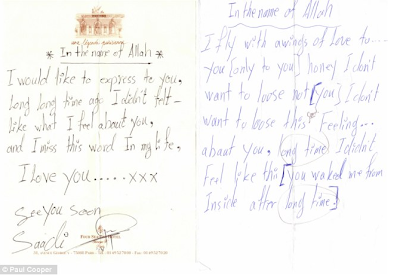 * In the name of Allah *
I would like to express to you,
Long long time ago I didn't felt -
like what I feel about you,
and I miss this word In my life,
I love you.....xxx
See you soon
Saadi
In the name of Allah
I fly with awings of love to....
you [only to you] honey I don't
want to loose not [you] I don't
want to loose this Feeling...
about you, long time I didn't
Feel like this [you waked me from
Inside after long time.]
© Paul Cooper